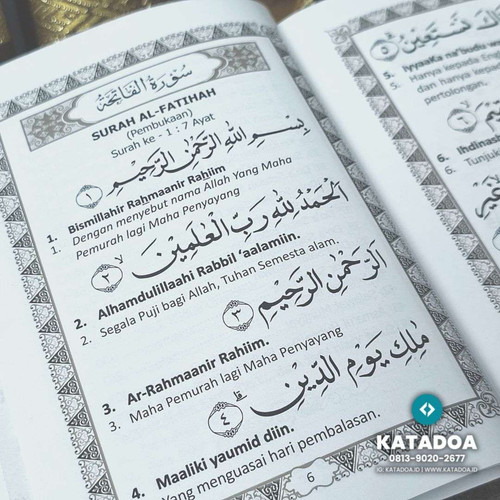 سُوْرَةُ الْفَاتِحَةِ
SURAH AL-FATIHAH
(Pembukaan)
Surah ke - 1 : 7 Ayat
بِسْمِ اللّٰهِ الرَّحْمٰنِ الرَّحِيْمِ ١
1. Bismillahir Rahmaanir Rahiim
1. Dengan menyebut nama Allah Yang Maha
Pemurah lagi Maha Penyayang
اَلْحَمْدُ لِلّٰهِ رَبِّ الْعٰلَمِيْنَ ٢
2. Alhamdulillaahi Rabbil ‘aalamiin.
2. Segala Puji bagi Allah, Tuhan Semesta alam.
اَلرَّحْمٰنِ الرَّحِيْمِ ٣
3. Ar-Rahmaanir Rahiim.
3. Maha Pemurah lagi Maha Penyayang
مٰلِكِ يَوْمِ الدِّيْنِ ٤
4. Maaliki yaumid diin.
Yang menguasai hari pembalasan.
6
نَسْتَعِيْنُ ٥
5. IyyaaKa na'budu
5. Hanya kepada
dan hanya kepada
pertolongan.
6. Ihdinas
6. Tunjuk
KATADOA
0813-9020-2677
IG: KATADOA.ID | WWW.KATADOA.ID